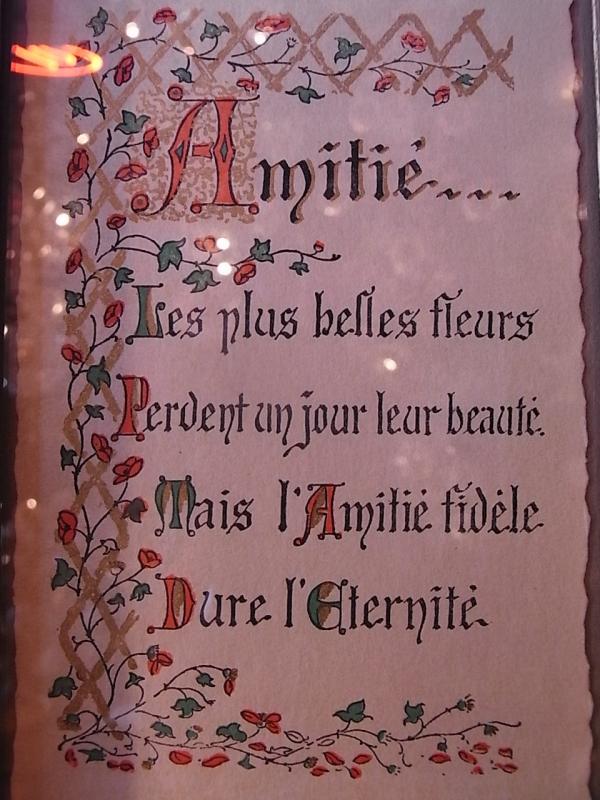 Amitié...
Les plus belles fleurs
Perdent un jour leur beauté.
Mais l'Amitié fidèle
Dure l'Eternité.